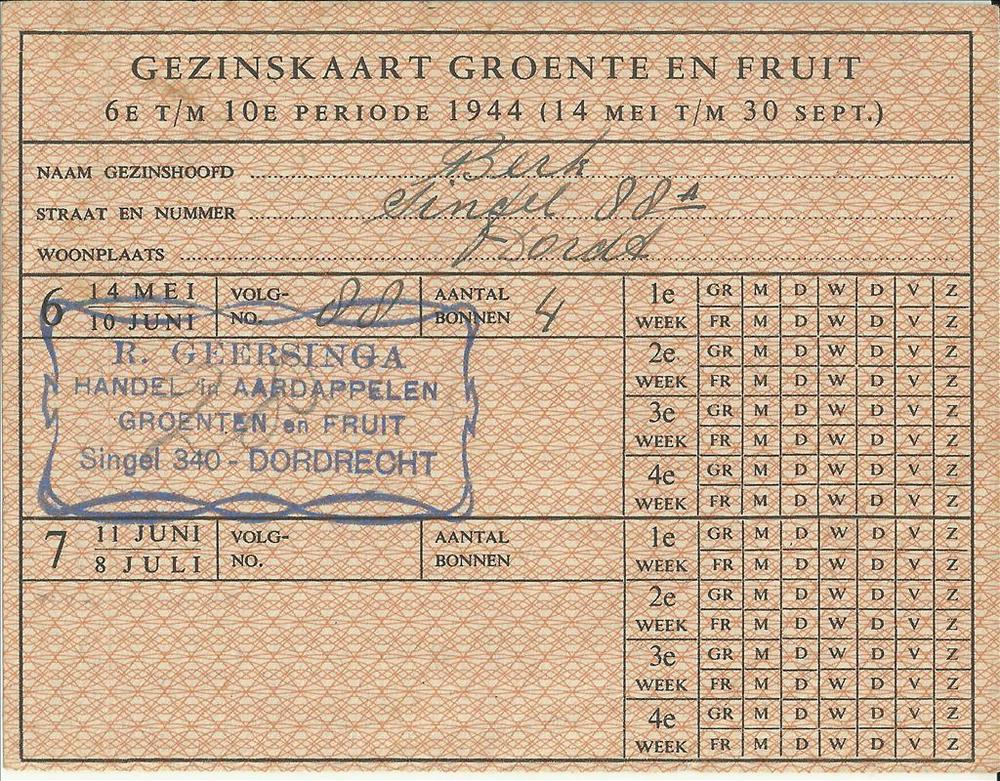 GEZINSKAART GROENTE EN FRUIT
6E T/M 10E PERIODE 1944 (14 MEI T/M 30 SEPT.)
NAAM GEZINSHOOFD Berk
STRAAT EN NUMMER Singel 88A
WOONPLAATS Dordt
6 14 MEI 10 JUNI VOLG-NO. 88 AANTAL BONNEN 4
R. GEERSINGA
HANDEL in AARDAPPELEN
GROENTEN en FRUIT
Singel 340 - DORDRECHT
1e GR M D W D V Z
WEEK FR M D W D V Z
2e GR M D W D V Z
WEEK FR M D W D V Z
3e GR M D W D V Z
WEEK FR M D W D V Z
4e GR M D W D V Z
WEEK FR M D W D V Z
7 11 JUNI 8 JULI VOLG-NO. AANTAL BONNEN
1e GR M D W D V Z
WEEK FR M D W D V Z
2e GR M D W D V Z
WEEK FR M D W D V Z
3e GR M D W D V Z
WEEK FR M D W D V Z
4e GR M D W D V Z
WEEK FR M D W D V Z